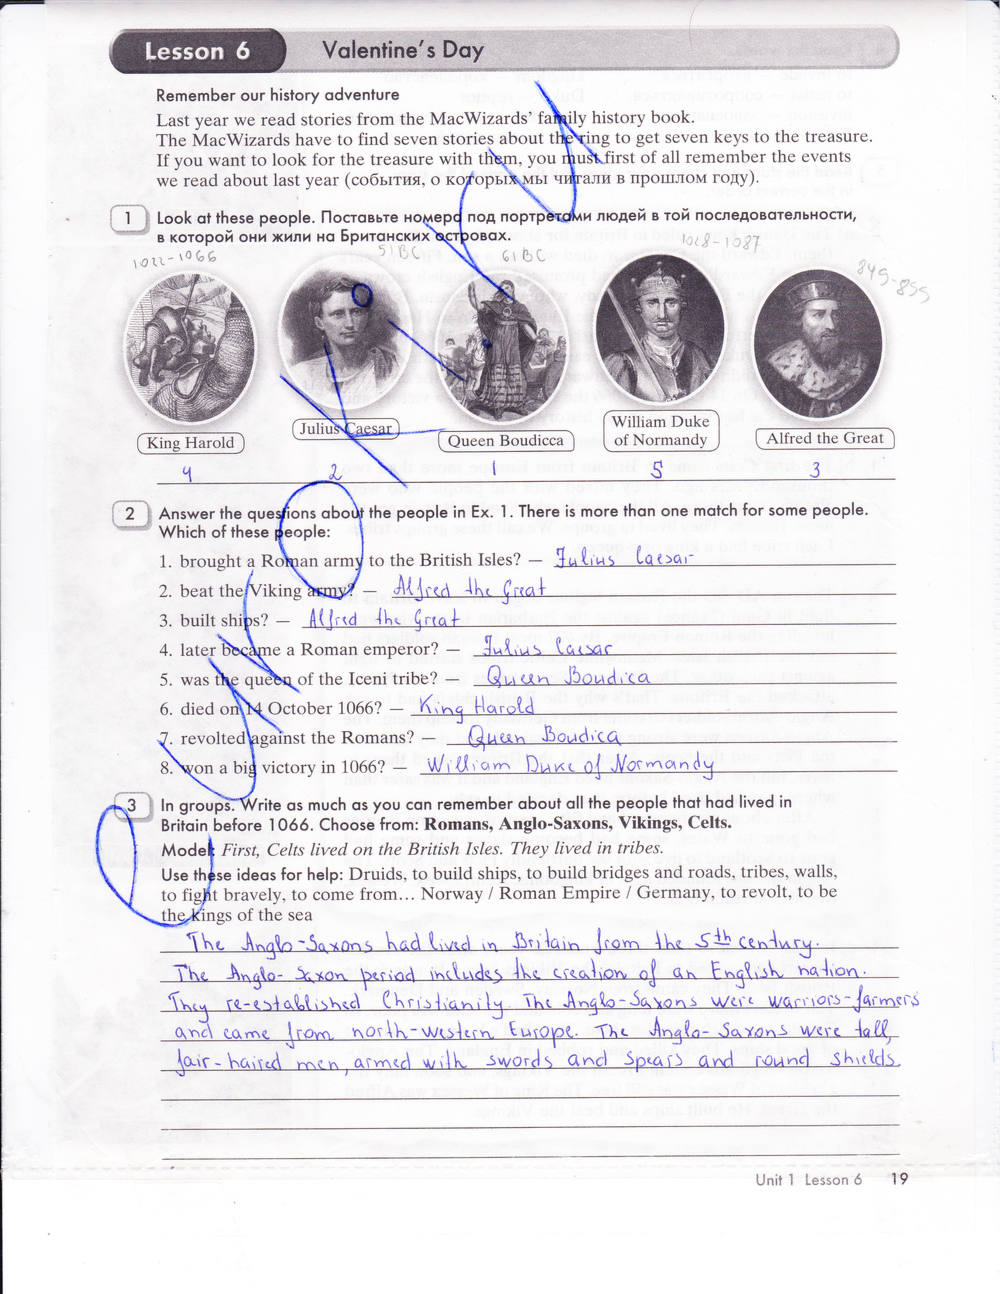 Lesson 6 Valentine's Day
Remember our history adventure
Last year we read stories from the MacWizards' family history book.
The MacWizards have to find seven stories about the ring to get seven keys to the treasure.
If you want to look for the treasure with them, you must first of all remember the events
we read about last year (события, о которых мы читали в прошлом году).
1 Look at these people. Поставьте номера под портретами людей в той последовательности,
в которой они жили на Британских островах.
1022-1066 51BC 61BC 1028-1087 849-899
King Harold Julius Caesar Queen Boudicca William Duke of Normandy Alfred the Great
4 2 1 5 3
2 Answer the questions about the people in Ex. 1. There is more than one match for some people.
Which of these people:
1. brought a Roman army to the British Isles? — Julius Caesar
2. beat the Viking army? — Alfred the Great
3. built ships? — Alfred the Great
4. later became a Roman emperor? — Julius Caesar
5. was the queen of the Iceni tribe? — Queen Boudica
6. died on 14 October 1066? — King Harold
7. revolted against the Romans? — Queen Boudica
8. won a big victory in 1066? — William Duke of Normandy
3 In groups. Write as much as you can remember about all the people that had lived in
Britain before 1066. Choose from: Romans, Anglo-Saxons, Vikings, Celts.
Model: First, Celts lived on the British Isles. They lived in tribes.
Use these ideas for help: Druids, to build ships, to build bridges and roads, tribes, walls,
to fight bravely, to come from... Norway / Roman Empire / Germany, to revolt, to be
the kings of the sea
The Anglo-Saxons had lived in Britain from the 5th century.
The Anglo-Saxon period includes the creation of an English nation.
They re-established Christianity. The Anglo-Saxons were warriors-farmers
and came from north-western Europe. The Anglo-Saxons were tall,
fair-haired men, armed with swords and spears and round shields.
Unit 1 Lesson 6 19